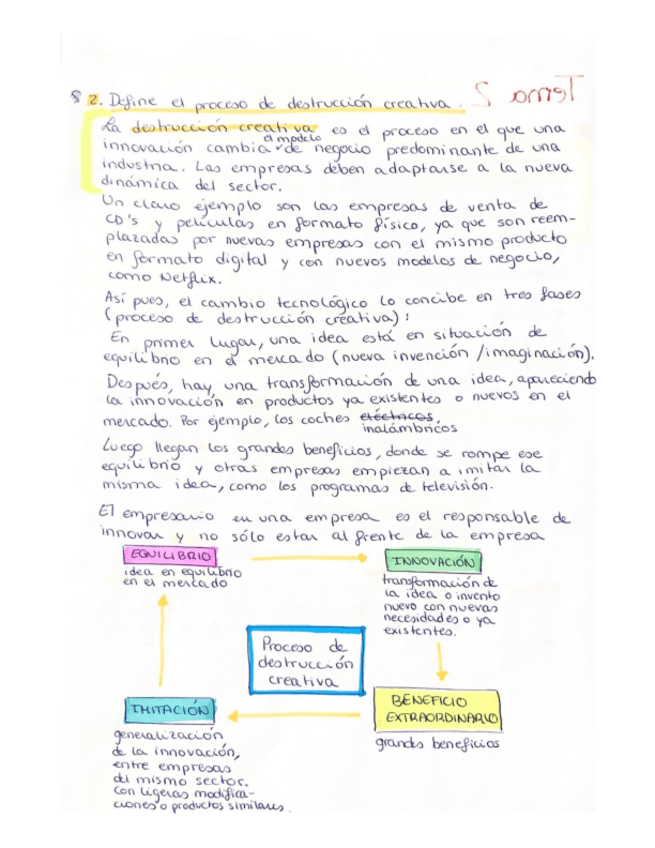 Tema 2
8 2. Define el proceso de destrucción creativa.
La destrucción creativa es el proceso en el que una
el modelo
innovación cambia de negocio predominante de una
industria. Las empresas deben adaptarse a la nueva
dinámica del sector.
Un claro ejemplo son las empresas de venta de
CD's y películas en formato físico, ya que son reem-
plazadas por nuevas empresas con el mismo producto
en formato digital y con nuevos modelos de negocio,
como Netflix.
Así pues, el cambio tecnológico lo concibe en tres fases
(proceso de destrucción creativa):
En primer lugar, una idea está en situación de
equilibrio en el mercado (nueva invención/imaginación).
Después, hay una transformación de una idea, apareciendo
la innovación en productos ya existentes o nuevos en el
mercado. Por ejemplo, los coches eléctricos,
inalámbricos
Luego llegan los grandes beneficios, donde se rompe ese
equilibrio y otras empresas empiezan a imitar la
misma idea, como los programas de televisión.
El empresario en una empresa es el responsable de
innovar y no sólo estar al frente de la empresa
EQUILIBRIO
idea en equilibrio
en el mercado
INNOVACIÓN
transformación de
la idea o invento
nuevo con nuevas
necesidades o ya
existentes.
Proceso de
destrucción
creativa
BENEFICIO
EXTRAORDINARIO
grandes beneficios
IMITACIÓN
generalización
de la innovación,
entre empresas
del mismo sector.
Con ligeras modifica-
ciones o productos similares.